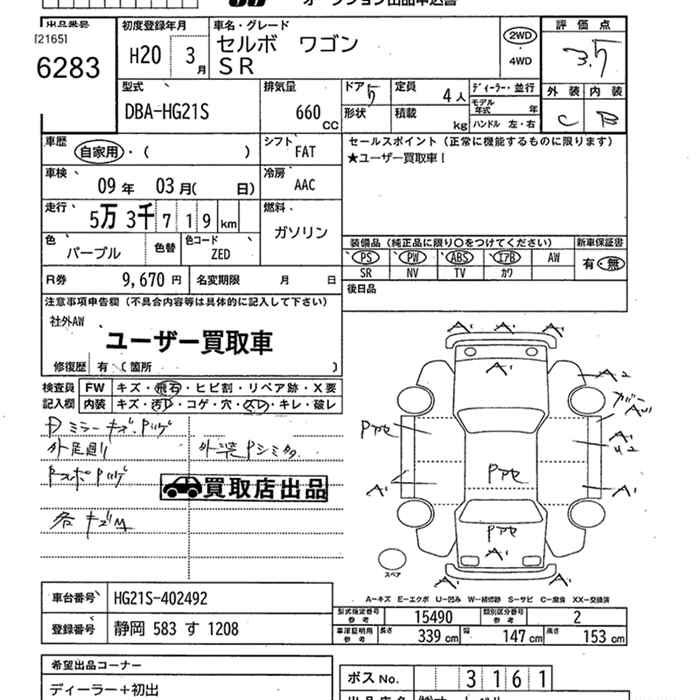 オークション出品申込書
出品番号
[2165]
6283
初度登録年月
H20 3月
車名・グレード
セルボ ワゴン
SR
2WD
・
4WD
評価点
3.5
外装 内装
C B
型式
DBA-HG21S
排気量
660
CC
ドア 5
形状
定員 4人
積載 kg
ディーラー・並行
モデル年式 年
ハンドル 左・右
車歴
自家用・( )
シフト
FAT
セールスポイント(正常に機能するものに限ります)
★ユーザー買取車!
車検
09年 03月( 日)
冷房
AAC
走行
5万3千719km
燃料
ガソリン
色
パープル
色替
色コード
ZED
装備品(純正品に限り○をつけてください)
新車保証書
PS PW ABS エアB AW
SR NV TV カワ
有・無
R券 9,670円
名変期限 月 日
後日品
注意事項申告欄(不具合内容等は具体的に記入して下さい)
社外AW
ユーザー買取車
修復歴 有(箇所 )
検査員
記入欄
FW キズ・飛石・ヒビ割・リペア跡・X要
内装 キズ・汚レ・コゲ・穴・スレ・キレ・破レ
外足廻り
買取店出品
A' A' A'
A'
A2
Pアセ
A'
Pアセ
A' A'
Pアセ
A'
A' A'
スペア
A-キズ E-エクボ U-凹み W-補修跡 S-サビ C-腐食 XX-交換済
車台番号 HG21S-402492
登録番号 静岡 583 す 1208
型式指定番号
参考
15490
類別区分番号
参考
2
車庫証明用
参考
長さ 339cm
幅 147cm
高さ 153cm
希望出品コーナー
ディーラー+初出
ボスNo. 3161